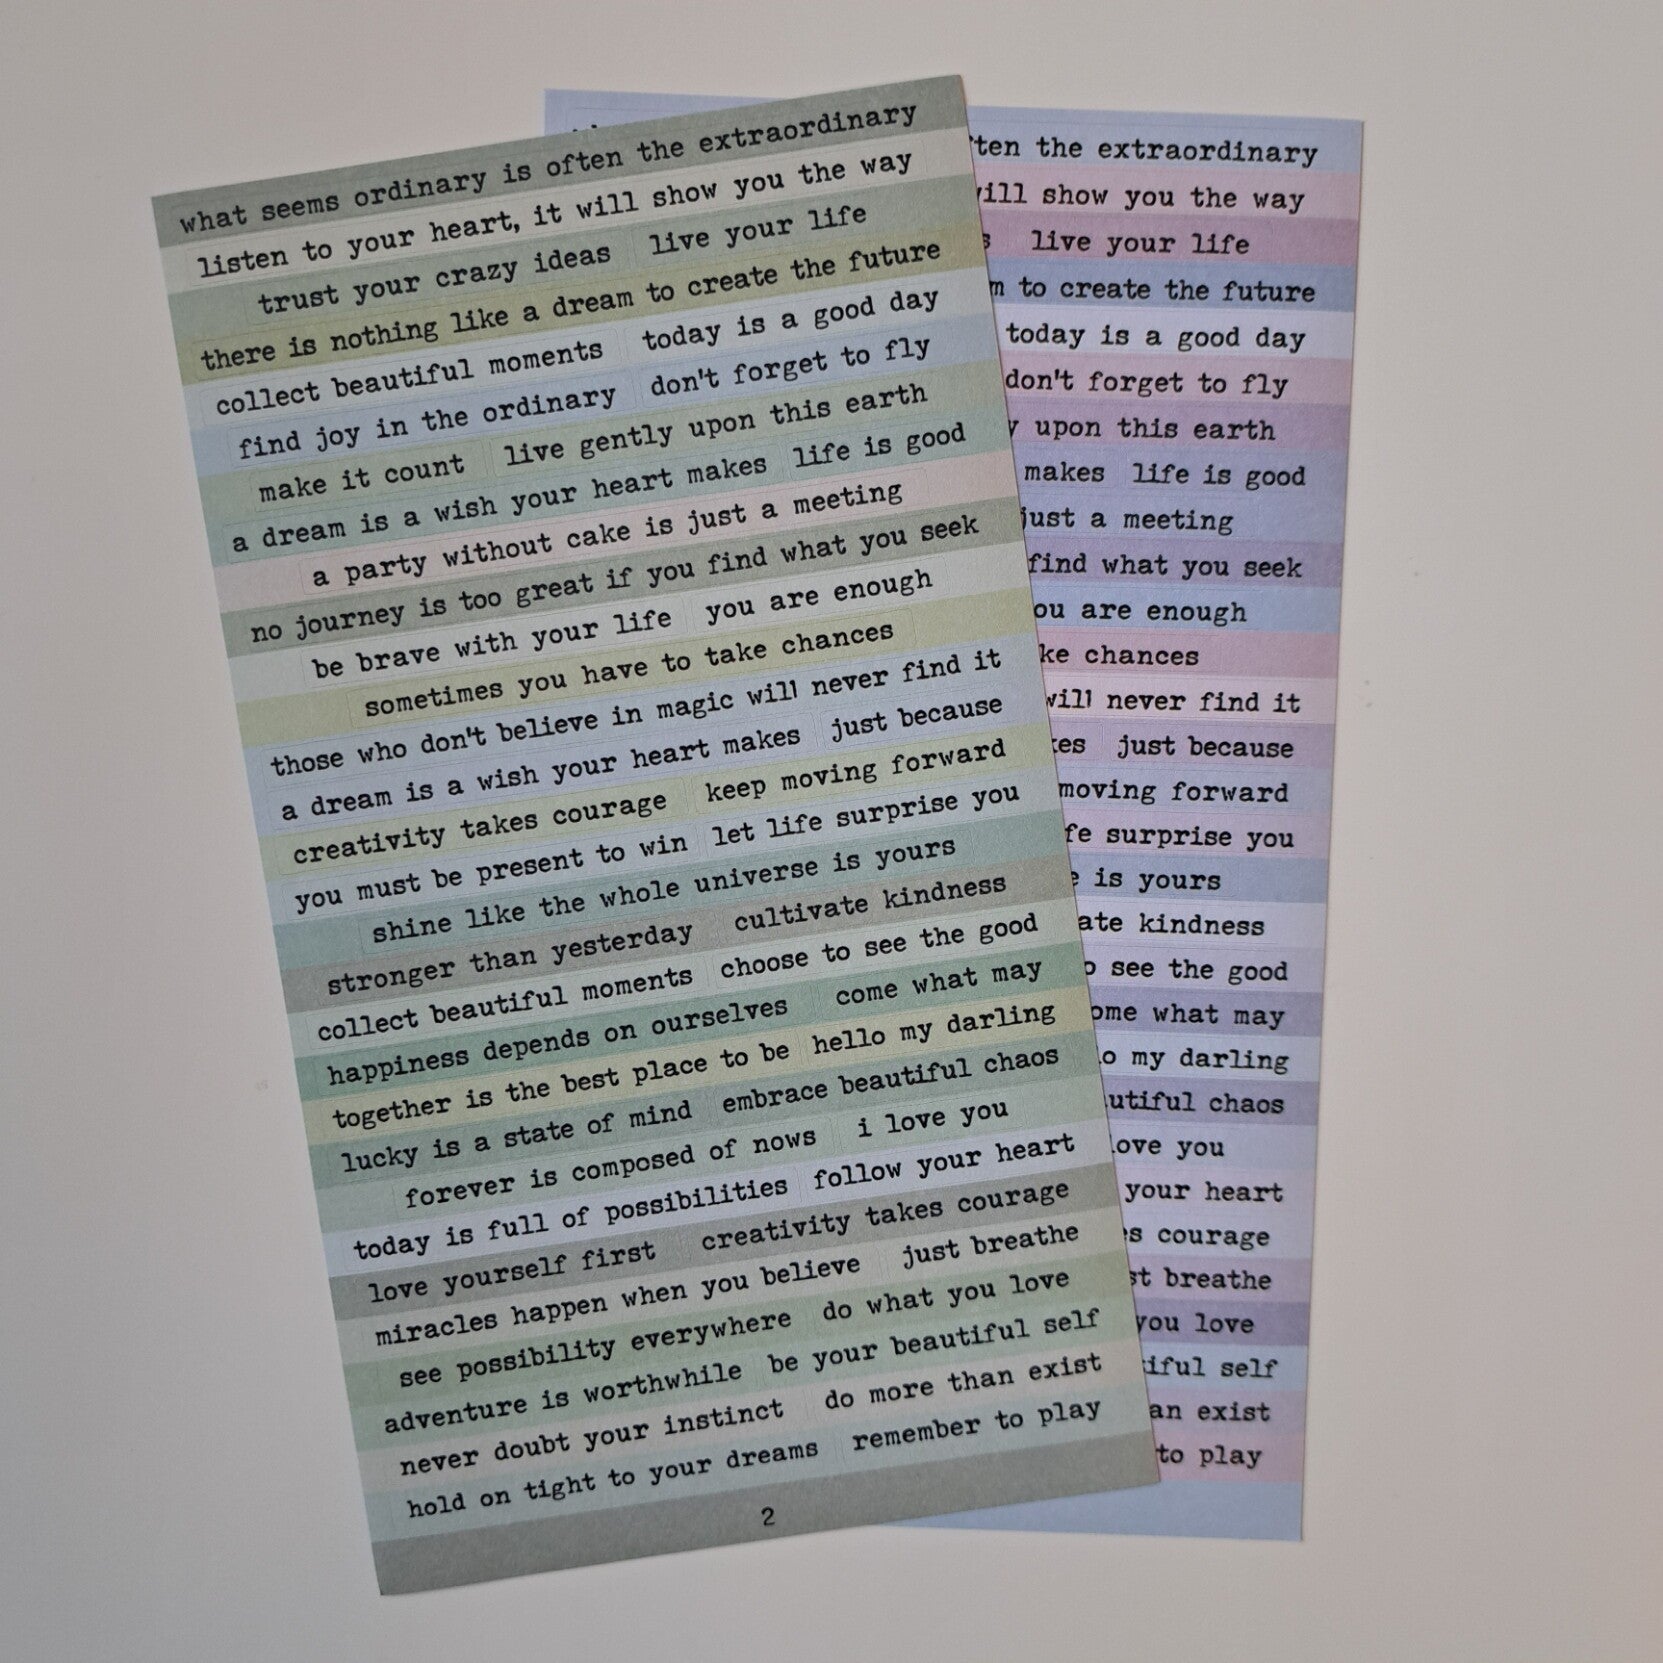 what seems ordinary is often the extraordinary
listen to your heart, it will show you the way
trust your crazy ideas live your life
there is nothing like a dream to create the future
collect beautiful moments today is a good day
find joy in the ordinary don't forget to fly
make it count live gently upon this earth
a dream is a wish your heart makes life is good
a party without cake is just a meeting
no journey is too great if you find what you seek
be brave with your life you are enough
sometimes you have to take chances
those who don't believe in magic will never find it
a dream is a wish your heart makes just because
creativity takes courage keep moving forward
you must be present to win let life surprise you
shine like the whole universe is yours
stronger than yesterday cultivate kindness
collect beautiful moments choose to see the good
happiness depends on ourselves come what may
together is the best place to be hello my darling
lucky is a state of mind embrace beautiful chaos
forever is composed of nows i love you
today is full of possibilities follow your heart
love yourself first creativity takes courage
miracles happen when you believe just breathe
see possibility everywhere do what you love
adventure is worthwhile be your beautiful self
never doubt your instinct do more than exist
hold on tight to your dreams remember to play
2
ten the extraordinary
will show you the way
s live your life
m to create the future
today is a good day
don't forget to fly
y upon this earth
makes life is good
just a meeting
find what you seek
ou are enough
ke chances
will never find it
kes just because
moving forward
fe surprise you
e is yours
ate kindness
o see the good
ome what may
lo my darling
utiful chaos
love you
your heart
es courage
st breathe
you love
tiful self
an exist
to play